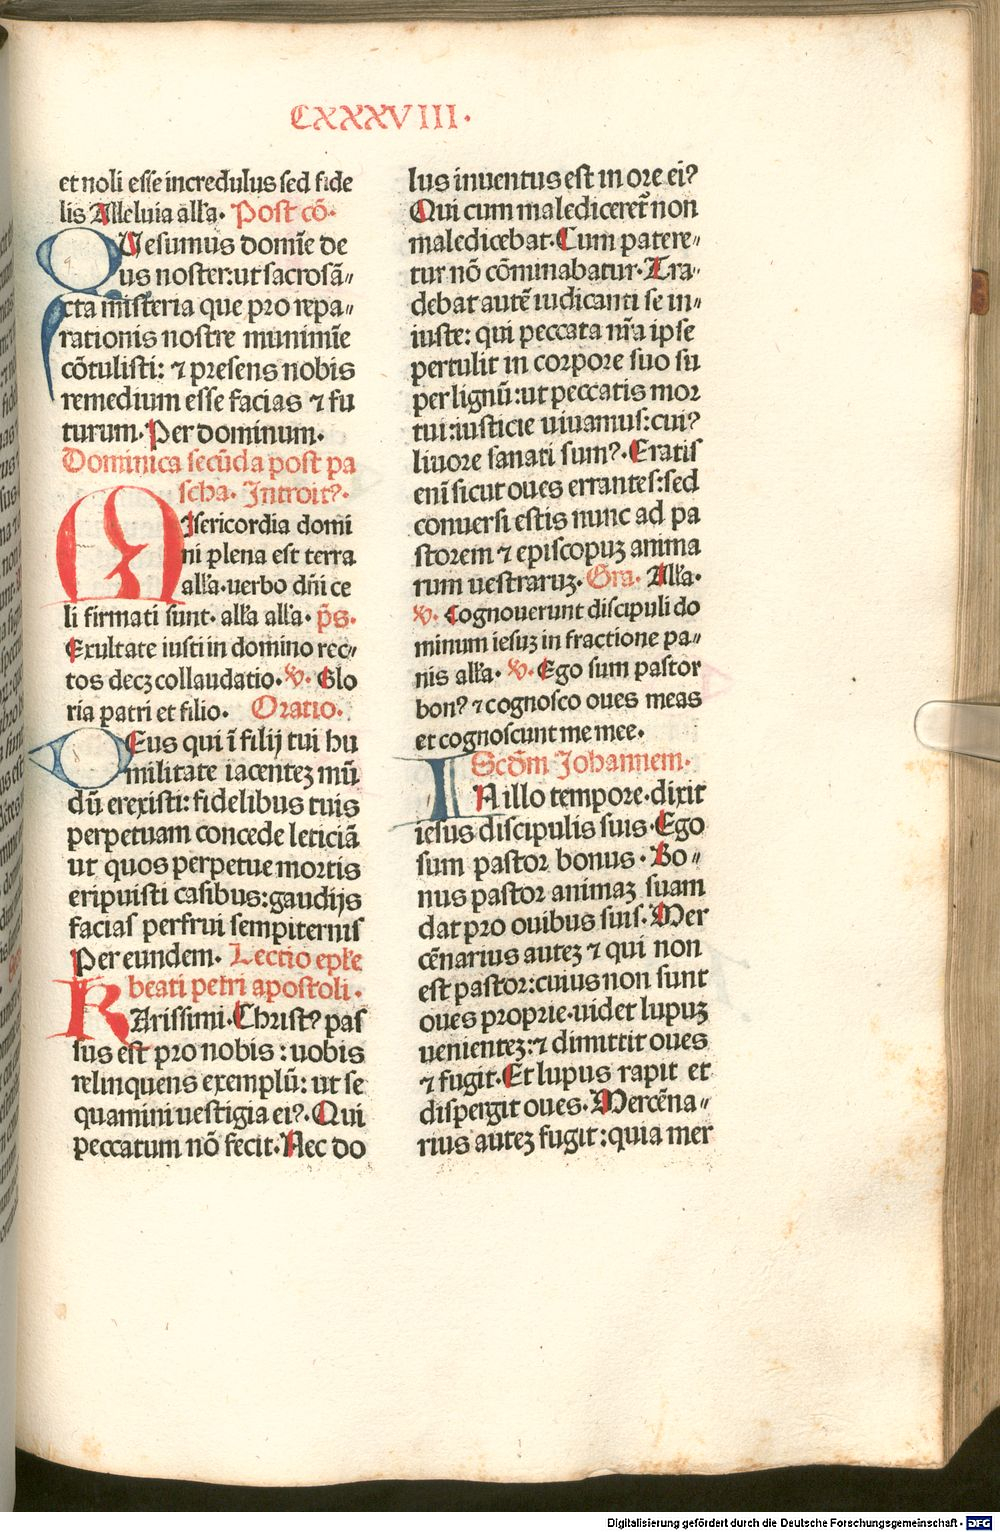 CXXXVIII.
et noli esse incredulus sed fide
lis Alleluia all'a. Post cō.
QVesumus domīe de
us noster: ut sacrosā-
cta misteria que pro repa-
rationis nostre munimīe
cōtulisti: ⁊ presens nobis
remedium esse facias ⁊ fu
turum. Per dominum.
Dominica secūda post pa
scha. Introitꝰ.
MIsericordia domi
ni plena est terra
all'a. uerbo dn̄i ce
li firmati sunt. all'a all'a. p̄s.
Exultate iusti in domino rec-
tos decꝫ collaudatio. V. Glo
ria patri et filio. Oratio.
DEus qui ī filij tui hu
militate iacenteꝫ mū
dū erexisti: fidelibus tuis
perpetuam concede leticiā
ut quos perpetue mortis
eripuisti casibus: gaudijs
facias perfrui sempiternis
Per eundem. Lectio epl'e
beati petri apostoli.
KArissimi. Christꝰ pas
sus est pro nobis: uobis
relinquens exemplū: ut se
quamini uestigia eiꝰ. Qui
peccatum nō fecit. Nec do
lus inuentus est in ore eiꝰ
Qui cum malediceret̄ non
maledicebat. Cum patere-
tur nō cōminabatur. Tra-
debat autē iudicanti se in-
iuste: qui peccata nr̄a ipse
pertulit in corpore suo su
per lignū: ut peccatis mor
tui: iusticie uiuamus: cuiꝰ
liuore sanati sumꝰ. Eratis
eni sicut oues errantes: sed
conuersi estis nunc ad pa
storem ⁊ episcopuꝫ anima
rum uestraruꝫ. Gra. All'a.
V. Cognouerunt discipuli do
minum iesuꝫ in fractione pa-
nis all'a. V. Ego sum pastor
bonꝰ ⁊ cognosco oues meas
et cognoscunt me mee.
Scd̄m Johannem.
IN illo tempore. dixit
iesus discipulis suis. Ego
sum pastor bonus. Bo-
nus pastor animaꝫ suam
dat pro ouibus suis. Mer
cēnarius auteꝫ ⁊ qui non
est pastor: cuius non sunt
oues proprie. uidet lupuꝫ
uenienteꝫ: ⁊ dimittit oues
⁊ fugit. Et lupus rapit et
dispergit oues. Mercēna-
rius auteꝫ fugit: quia mer
Digitalisierung gefördert durch die Deutsche Forschungsgemeinschaft - DFG